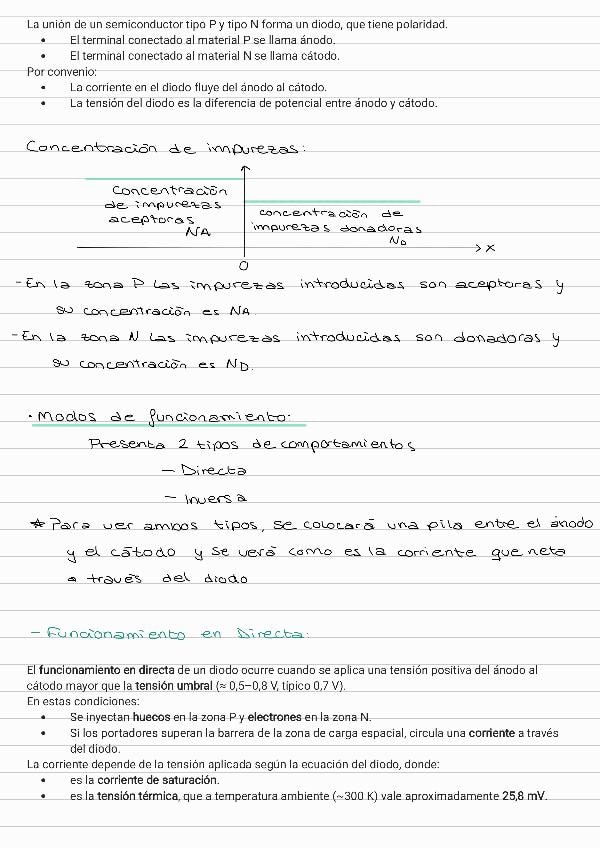 La unión de un semiconductor tipo P y tipo N forma un diodo, que tiene polaridad.
• El terminal conectado al material P se llama ánodo.
• El terminal conectado al material N se llama cátodo.
Por convenio:
• La corriente en el diodo fluye del ánodo al cátodo.
• La tensión del diodo es la diferencia de potencial entre ánodo y cátodo.
Concentración de impurezas:
Concentración
de impurezas
aceptoras
NA
concentración de
impurezas donadoras
ND
x
0
- En la zona P las impurezas introducidas son aceptoras y
su concentración es NA.
- En la zona N las impurezas introducidas son donadoras y
su concentración es ND.
• Modos de funcionamiento:
Presenta 2 tipos de comportamientos
- Directa
- Inversa
* Para ver ambos tipos, se colocará una pila entre el ánodo
y el cátodo y se verá como es la corriente que neta
a través del diodo
- Funcionamiento en Directa:
El funcionamiento en directa de un diodo ocurre cuando se aplica una tensión positiva del ánodo al
cátodo mayor que la tensión umbral (≈ 0,5–0,8 V, típico 0,7 V).
En estas condiciones:
• Se inyectan huecos en la zona P y electrones en la zona N.
• Si los portadores superan la barrera de la zona de carga espacial, circula una corriente a través
del diodo.
La corriente depende de la tensión aplicada según la ecuación del diodo, donde:
• es la corriente de saturación.
• es la tensión térmica, que a temperatura ambiente (~300 K) vale aproximadamente 25,8 mV.